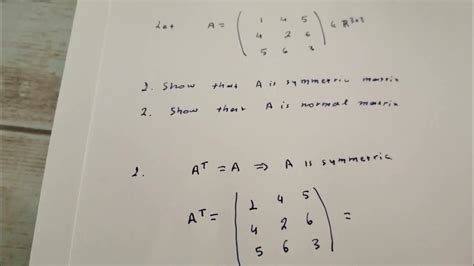 Let A = ( 1 4 5
4 2 6
5 6 3 ) ∈ R^3x3
1. Show that A is symmetric matrix
2. Show that A is normal matrix
1. A^T = A ⇒ A is symmetric
A^T = ( 1 4 5
4 2 6
5 6 3 ) =